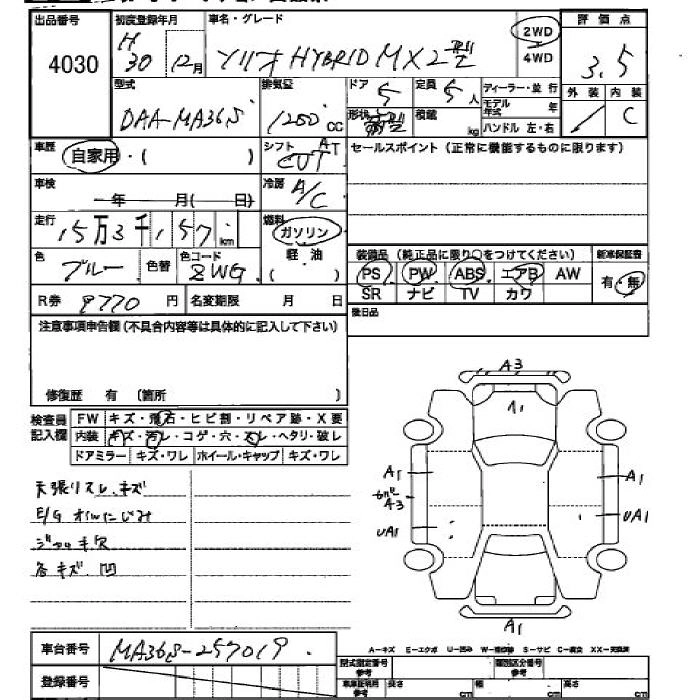 出品番号 初度登録年月 車名・グレード 評価点
4030 H30 12月 ソリオ HYBRID MX 2型 2WD 4WD 3.5
型式 排気量 ドア 定員 ディーラー・並行 外装 内装
DAA-MA36S 1200 cc 5 5人 モデル年式 年 C
形状 積載 kg ハンドル 左・右
車歴 自家用・( ) シフト AT CVT セールスポイント (正常に機能するものに限ります)
車検 年 月( 日) 冷房 A/C
走行 15万3千157 km 燃料 ガソリン 軽油 ( )
色 ブルー 色替 色コード ZWG 装備品 (純正品に限り○をつけてください) 新車保証書
PS PW ABS エアB AW 有・無
R券 9770円 名変期限 月 日 SR ナビ TV カワ
注意事項申告欄(不具合内容等は具体的に記入して下さい) 後日品
修復歴 有 (箇所 )
検査員記入欄 FW キズ・飛石・ヒビ割・リペア跡・X要
内装 キズ・汚レ・コゲ・穴・スレ・ヘタリ・破レ
ドアミラー キズ・ワレ ホイール・キャップ キズ・ワレ
A3
A1
A1 A1
A3
UA1 UA1
A1
天張りスレ、キズ
E/G オイルにじみ
ジャッキ欠
各キズ.凹
車台番号 MA36S-257019
A-キズ E-エクボ U-凹み W-補修跡 S-サビ C-腐食 XX-交換済
登録番号 型式指定番号 参考 類別区分番号 参考
車車証明用 参考 長さ cm 幅 cm 高さ cm